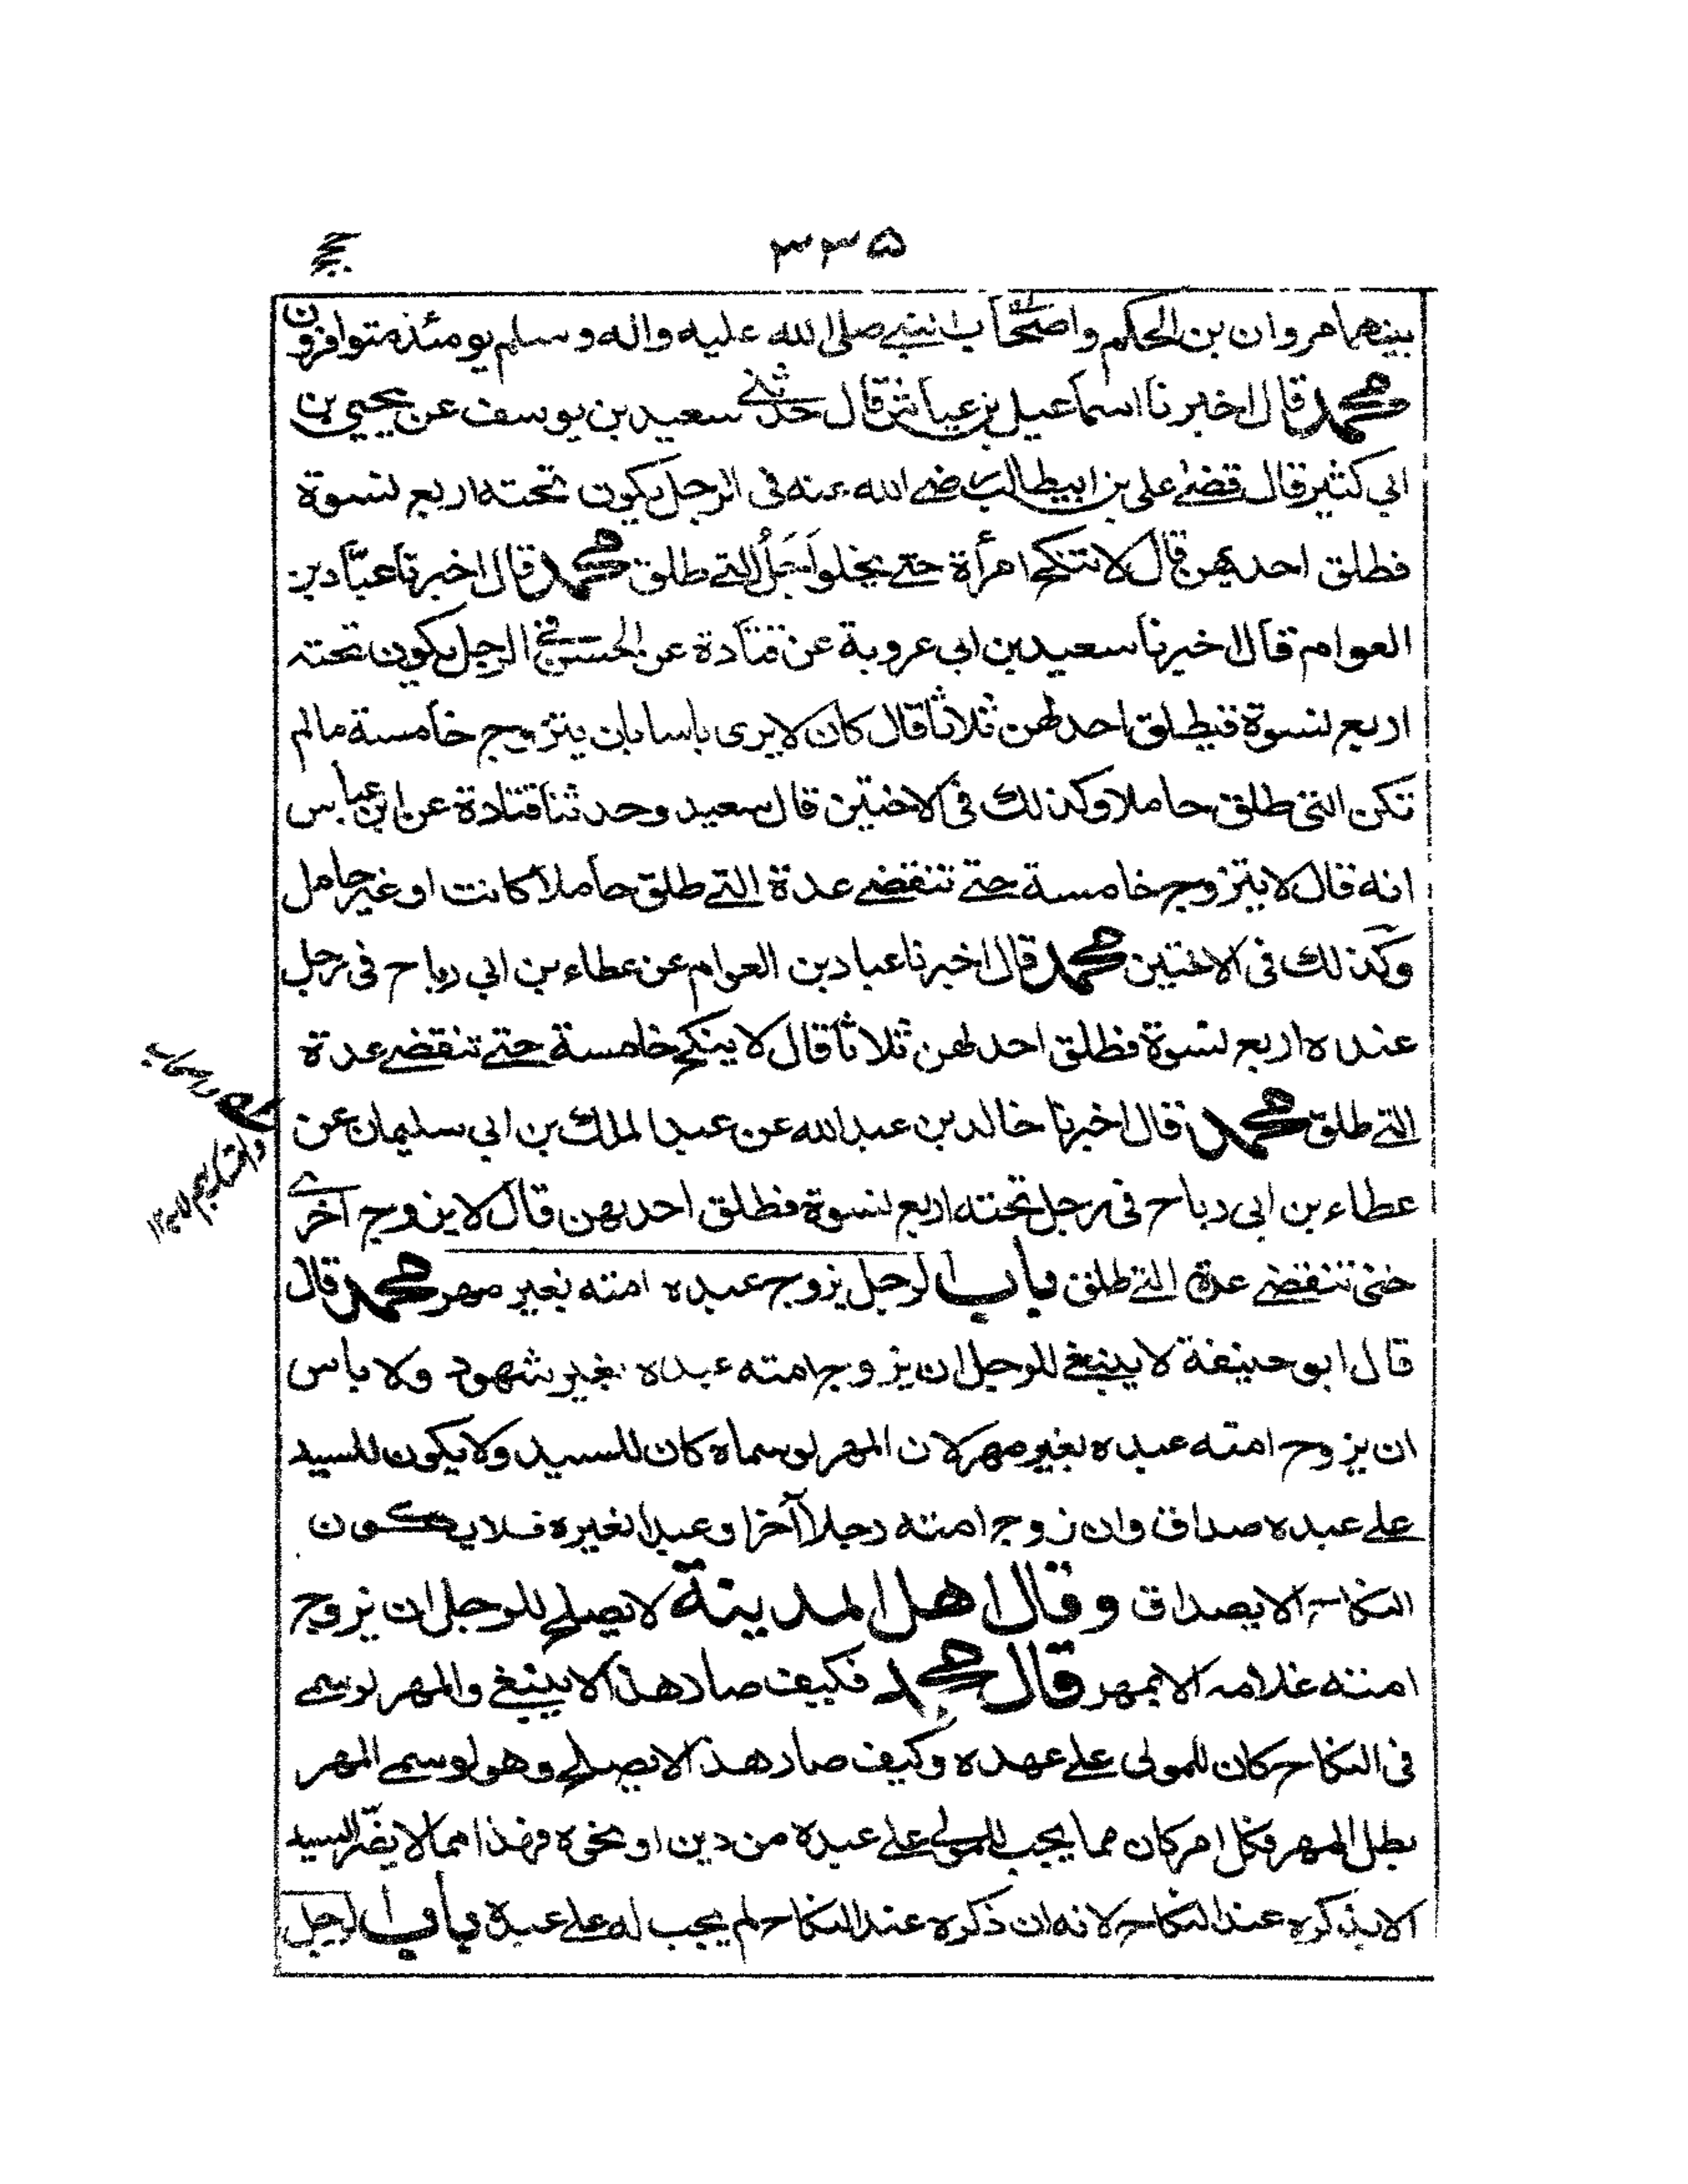 ٣٣٥
بينهما مروان بن الحكم واصحاب النبي صلى الله عليه واله وسلم يومئذ متوافرون
محمد قال اخبرنا اسماعيل بن عياش قال حدثني سعيد بن يوسف عن يحيي بن
ابي كثير قال قضى علي بن ابيطالب رضي الله عنه في الرجل يكون تحته اربع نسوة
فطلق احديهن قال لا تنكح امرأة حتى يخلو اَجَلُ التي طلق محمد قال اخبرنا عبّاد بن
العوام قال اخبرنا سعيد بن ابي عروبة عن قتادة عن الحسن في الرجل يكون تحته
اربع نسوة فيطلق احدلهن ثلاثا قال كان لا يرى باسا بان يتزوج خامسة مالم
تكن التي طلق حاملا وكذلك في الاختين قال سعيد وحدثنا قتادة عن ابن عباس
انه قال لا يتزوج خامسة حتى تنقضي عدة التي طلق حاملا كانت او غير حامل
وكذلك في الاختين محمد قال اخبرنا عباد بن العوام عن عطاء بن ابي رباح في رجل
عنده اربع نسوة فطلق احدلهن ثلاثا قال لا ينكح خامسة حتى تنقضي عدة
التي طلق محمد قال اخبرنا خالد بن عبد الله عن عبد الملك بن ابي سليمان عن
عطاء بن ابي رباح في رجل تحته اربع نسوة فطلق احديهن قال لا يزوج آخرى
حتى تنقضي عدة التي طلق باب الرجل يزوج عبده امته بغير مهر محمد قال
قال ابو حنيفة لا ينبغي للرجل ان يزوج امته عبده بغير شهود ولا باس
ان يزوج امته عبده بغير مهر لان المهر لو سماه كان للسيد ولا يكون للسيد
على عبده صداق وان زوج امته رجلا آخر او عبدا لغيره فلا يكون
النكاح الا بصداق وقال اهل المدينة لا يصلح للرجل ان يزوج
امته غلامه الا بمهر قال محمد فكيف صار هذا لا ينبغي والمهر لو سمي
في النكاح كان للمولى على عهده وكيف صار هذا لا يصلح وهو لو سمى المهر
بطل المهر وكل امر كان مما يجب للمولى على عبده من دين او نحوه فهذا مما لا يضر السيد
الا يذكره عند النكاح لانه ان ذكره عند النكاح لم يجب له على عبده باب الرجل